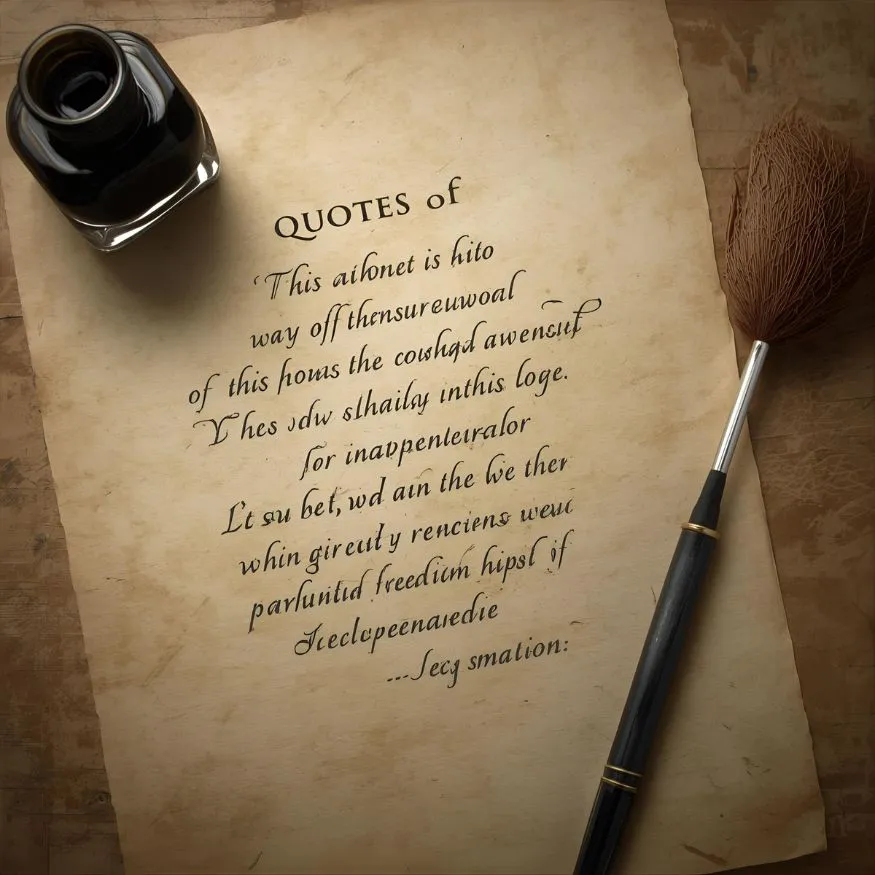 QUOTES of
‘This aihonet is hito
way off thensureuwoal
of this houas the coushgd awensuf
Yhes odw slhaily inthis loge.
for inavpenteiralor
Lt su bet, wd ain the lve ther
whin gireuty renciens weuc
parluntid freedim hipsl if
Jeclopeenaredie
... Jecg smation: